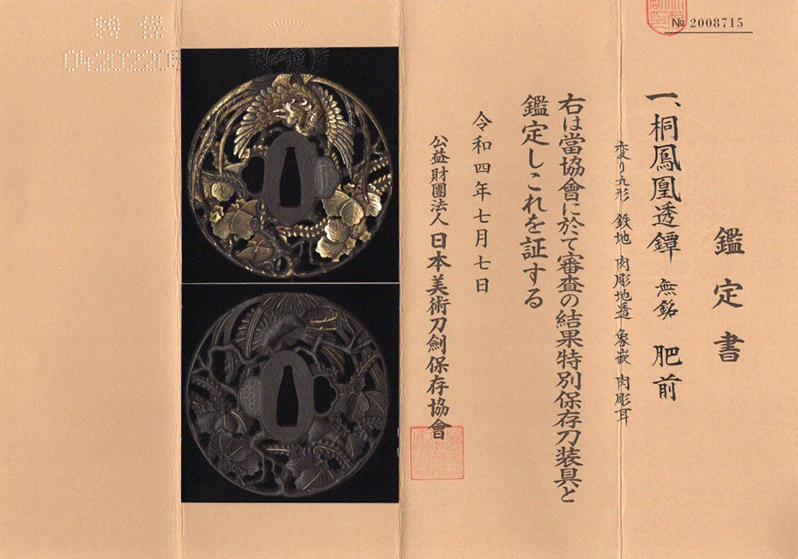 № 2008715
鑑定書
一、桐鳳凰透鐔 無銘 肥前
変り丸形 鉄地 肉彫地透 象嵌 肉彫耳
右は當協會に於て審査の結果特別保存刀装具と
鑑定しこれを証する
令和四年七月七日
公益財團法人 日本美術刀劍保存協會